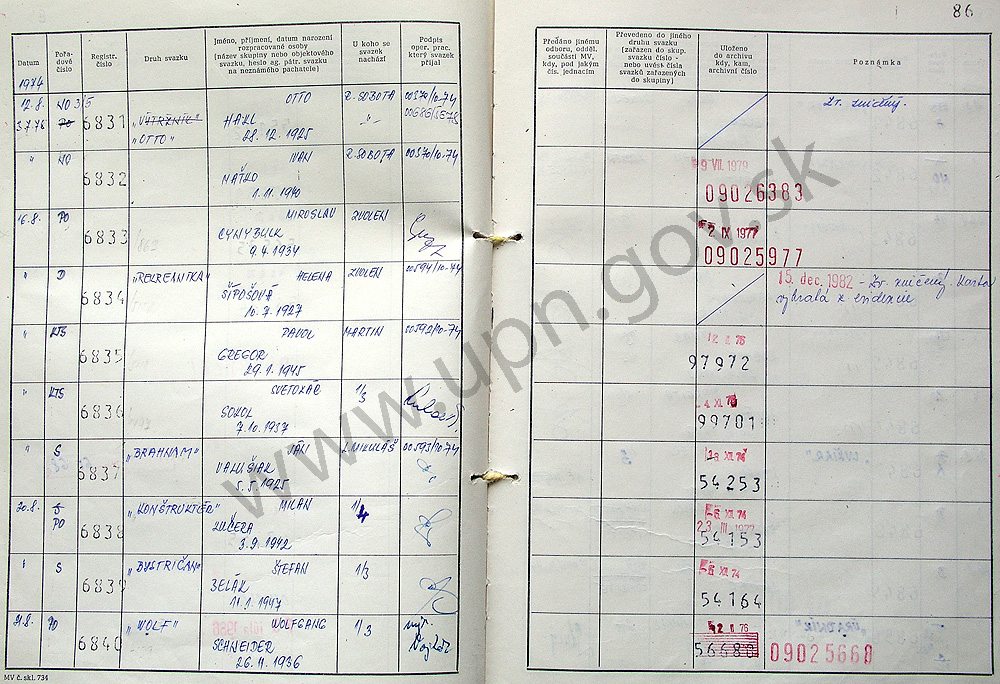 86
Datum
Pořa-
dové
číslo
Registr.
číslo
Druh svazku
Jméno, příjmení, datum narození
rozpracované osoby
(název skupiny nebo objektového
svazku, heslo ag. pátr. svazku
na neznámého pachatele)
U koho se
svazek
nachází
Podpis
oper. prac.
který svazek
přijal
Předáno jinému
odboru, odděl.
součásti MV,
kdy, pod jakým
čís. jednacím
Převedeno do jiného
druhu svazku
(zařazen do skup.
svazku číslo -
nebo uvést čísla
svazků zařazených
do skupiny)
Uloženo
do archivu
kdy, kam,
archivní číslo
Poznámka
1974
12.8. NO OTTO R. SOBOTA 00570/10-74
3.7.76 PO 6831 „VÝTRŽNÍK" HAKL -„-
„OTTO" 28.12.1925
Zv. zničený.
" NO IVAN R.SOBOTA 00570/10-74
6832 MAŤKO
1.11.1940
9 VII. 1979
09026383
16.8. PO MIROSLAV ZVOLEN
6833 CYNYBULK
9.4.1934
2 IX 1977
09025977
" D „REKREANTKA" HELENA ZVOLEN 00594/10-74
6834 ŠÍPOŠOVÁ
10.7.1927
15. dec. 1982 - Zv. zničený. Karta
vybratá z evidencie
" KTS PAVOL MARTIN 00592/10-74
6835 GREGOR
29.1.1945
12 II 76
97972
" KTS SVETOZÁR 1/3
6836 SOKOL
7.10.1937
99701
" S „BRAHNAM" JÁN L.MIKULÁŠ 00593/10-74
6837 VALUŠIAK
5.5.1925
XI. 74
54253
20.8. S „KONŠTRUKTÉR" MILAN 1/4
PO 6838 KUČERA
3.9.1942
XI. 74
23 III 1977
54153
" S „BYSTRIČAN" ŠTEFAN 1/3
6839 BELÁK
11.1.1947
XI. 74
54164
21.8. PO „WOLF" WOLFGANG 1/3
6840 SCHNEIDER
26.4.1936
12 II 76
56680 09025660
MV č. skl. 734
www.upn.gov.sk